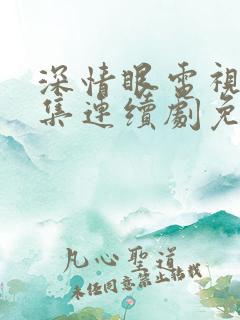 深情眼電視
集連續劇免
凡心聖道
未经同意禁止转载